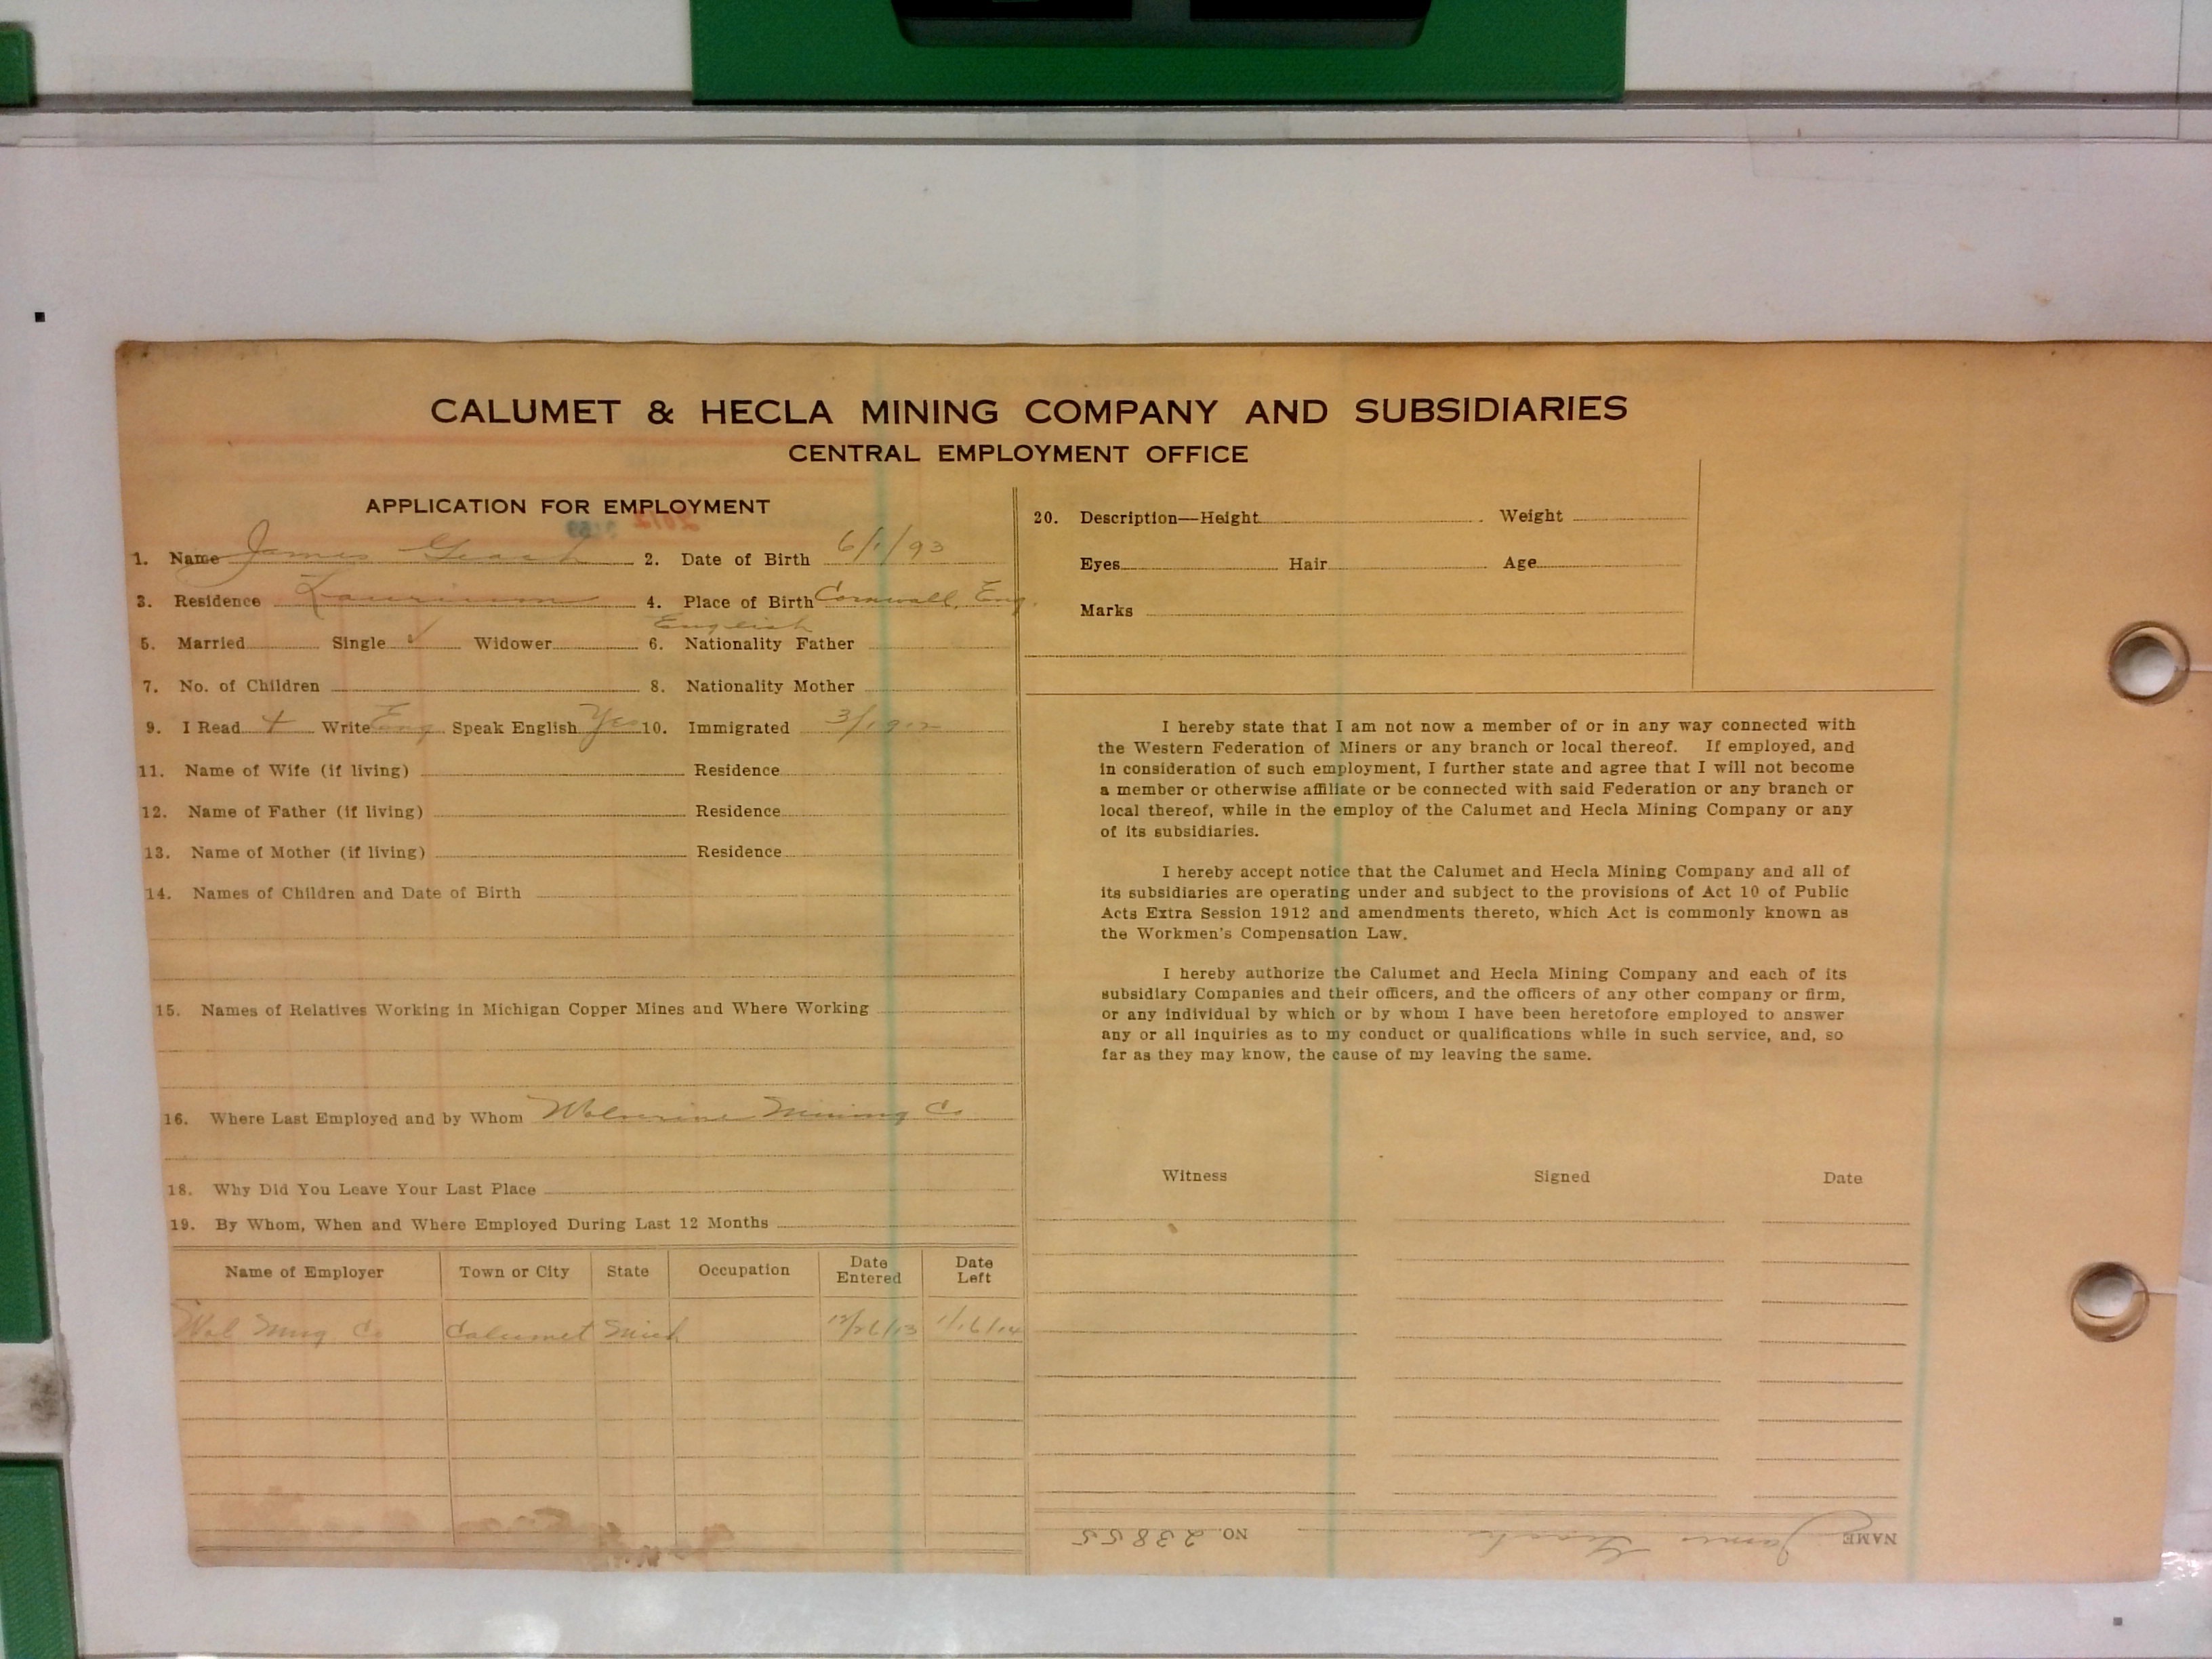 CALUMET & HECLA MINING COMPANY AND SUBSIDIARIES
CENTRAL EMPLOYMENT OFFICE
APPLICATION FOR EMPLOYMENT
1. Name James 2. Date of Birth 6/1/93
3. Residence Laurium 4. Place of Birth Cornwall, Eng.
English
5. Married Single ✓ Widower 6. Nationality Father
7. No. of Children 8. Nationality Mother
9. I Read + Write Eng Speak English Yes 10. Immigrated 3/1912
11. Name of Wife (if living) Residence
12. Name of Father (if living) Residence
13. Name of Mother (if living) Residence
14. Names of Children and Date of Birth
15. Names of Relatives Working in Michigan Copper Mines and Where Working
16. Where Last Employed and by Whom Wolverine Mining Co
18. Why Did You Leave Your Last Place
19. By Whom, When and Where Employed During Last 12 Months
Name of Employer Town or City State Occupation Date Entered Date Left
Wol Mng Co Calumet Mich 12/26/13 1/16/14
20. Description—Height Weight
Eyes Hair Age
Marks
I hereby state that I am not now a member of or in any way connected with
the Western Federation of Miners or any branch or local thereof. If employed, and
in consideration of such employment, I further state and agree that I will not become
a member or otherwise affiliate or be connected with said Federation or any branch or
local thereof, while in the employ of the Calumet and Hecla Mining Company or any
of its subsidiaries.
I hereby accept notice that the Calumet and Hecla Mining Company and all of
its subsidiaries are operating under and subject to the provisions of Act 10 of Public
Acts Extra Session 1912 and amendments thereto, which Act is commonly known as
the Workmen's Compensation Law.
I hereby authorize the Calumet and Hecla Mining Company and each of its
subsidiary Companies and their officers, and the officers of any other company or firm,
or any individual by which or by whom I have been heretofore employed to answer
any or all inquiries as to my conduct or qualifications while in such service, and, so
far as they may know, the cause of my leaving the same.
Witness Signed Date
NAME James NO. 23855